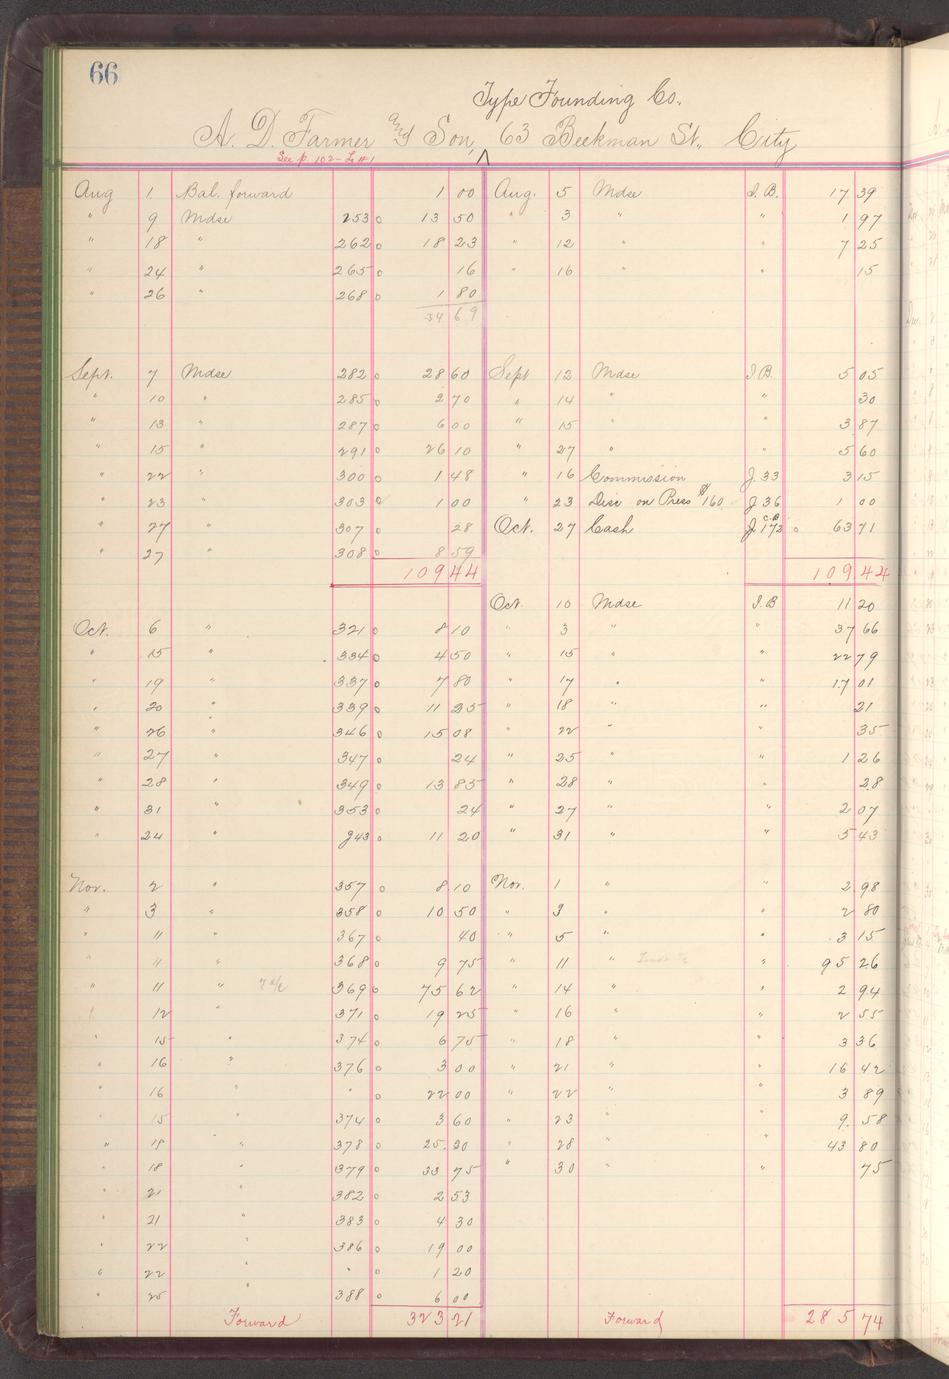 66
Type Founding Co.
A. D. Farmer and Son, 63 Beekman St., City
See p. 102 - L # 1
Aug 1 Bal. forward 1 00 Aug. 5 Mdse I.B. 17 39
" 9 Mdse 253 0 13 50 " 3 " " 1 97
" 18 " 262 0 18 23 " 12 " " 7 25
" 24 " 265 0 16 " 16 " " 15
" 26 " 268 0 1 80
34 69
Sept. 7 Mdse 282 0 28 60 Sept 12 Mdse I.B. 5 05
" 10 " 285 0 2 70 " 14 " " 30
" 13 " 287 0 6 00 " 15 " " 3 87
" 15 " 291 0 26 10 " 27 " " 5 60
" 22 " 300 0 1 48 " 16 Commission J. 33 3 15
" 23 " 303 0 1 00 " 23 Disc on Press $160 J. 36 1 00
" 27 " 307 28 Oct. 27 Cash C.B. 173 0 63 71
" 27 " 308 0 8 59
109 44 109 44
Oct. 10 Mdse I.B 11 20
Oct. 6 " 321 0 8 10 " 3 " " 37 66
" 15 " 334 0 4 50 " 15 " " 22 79
" 19 " 337 0 7 80 " 17 " " 17 01
" 20 " 339 0 11 25 " 18 " " 21
" 26 " 346 0 15 08 " 22 " " 35
" 27 " 347 24 " 25 " " 1 26
" 28 " 349 0 13 85 " 28 " " 28
" 31 " 353 0 24 " 27 " " 2 07
" 24 " J43 0 11 20 " 31 " " 5 43
Nov. 2 " 357 0 8 10 Nov. 1 " " 2 98
" 3 " 358 0 10 50 " 3 " " 2 80
" 11 " 367 0 40 " 5 " " 3 15
" 11 " 368 0 9 75 " 11 " " 95 26
" 11 " 369 0 75 62 " 14 " " 2 94
" 12 371 0 19 25 " 16 " " 2 55
" 15 " 374 0 6 75 " 18 " " 3 36
" 16 " 376 0 3 00 " 21 " " 16 42
16 " " 22 00 " 22 " " 3 89
" 15 " 374 0 3 60 " 23 " " 9 58
" 18 " 378 0 25 20 " 28 " " 43 80
" 18 " 379 0 33 75 " 30 " " 75
" 21 " 382 0 2 53
" 21 " 383 0 4 30
" 22 " 386 0 19 00
" 22 " " 0 1 20
" 25 " 388 0 6 00
Forward 323 21 Forward 285 74